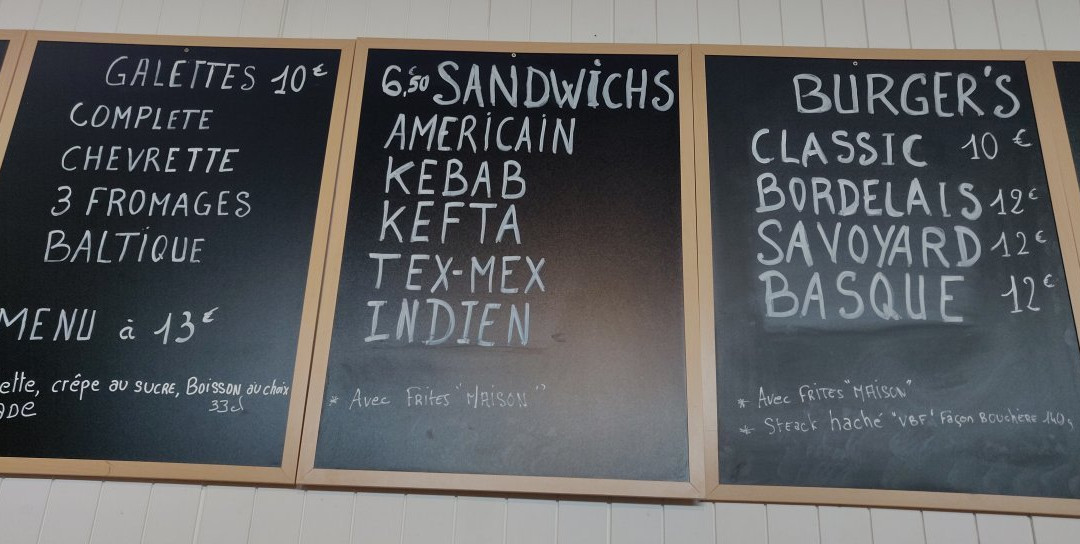 GALETTES 10€
COMPLETE
CHEVRETTE
3 FROMAGES
BALTIQUE
MENU à 13€
ette, crêpe au sucre, Boisson au choix
33cl
ADE
6,50€ SANDWICHS
AMERICAIN
KEBAB
KEFTA
TEX-MEX
INDIEN
* Avec Frites "MAISON"
BURGER'S
CLASSIC 10 €
BORDELAIS 12€
SAVOYARD 12€
BASQUE 12€
* Avec Frites "MAISON"
* Steack haché "VBF" Façon Bouchère 140g